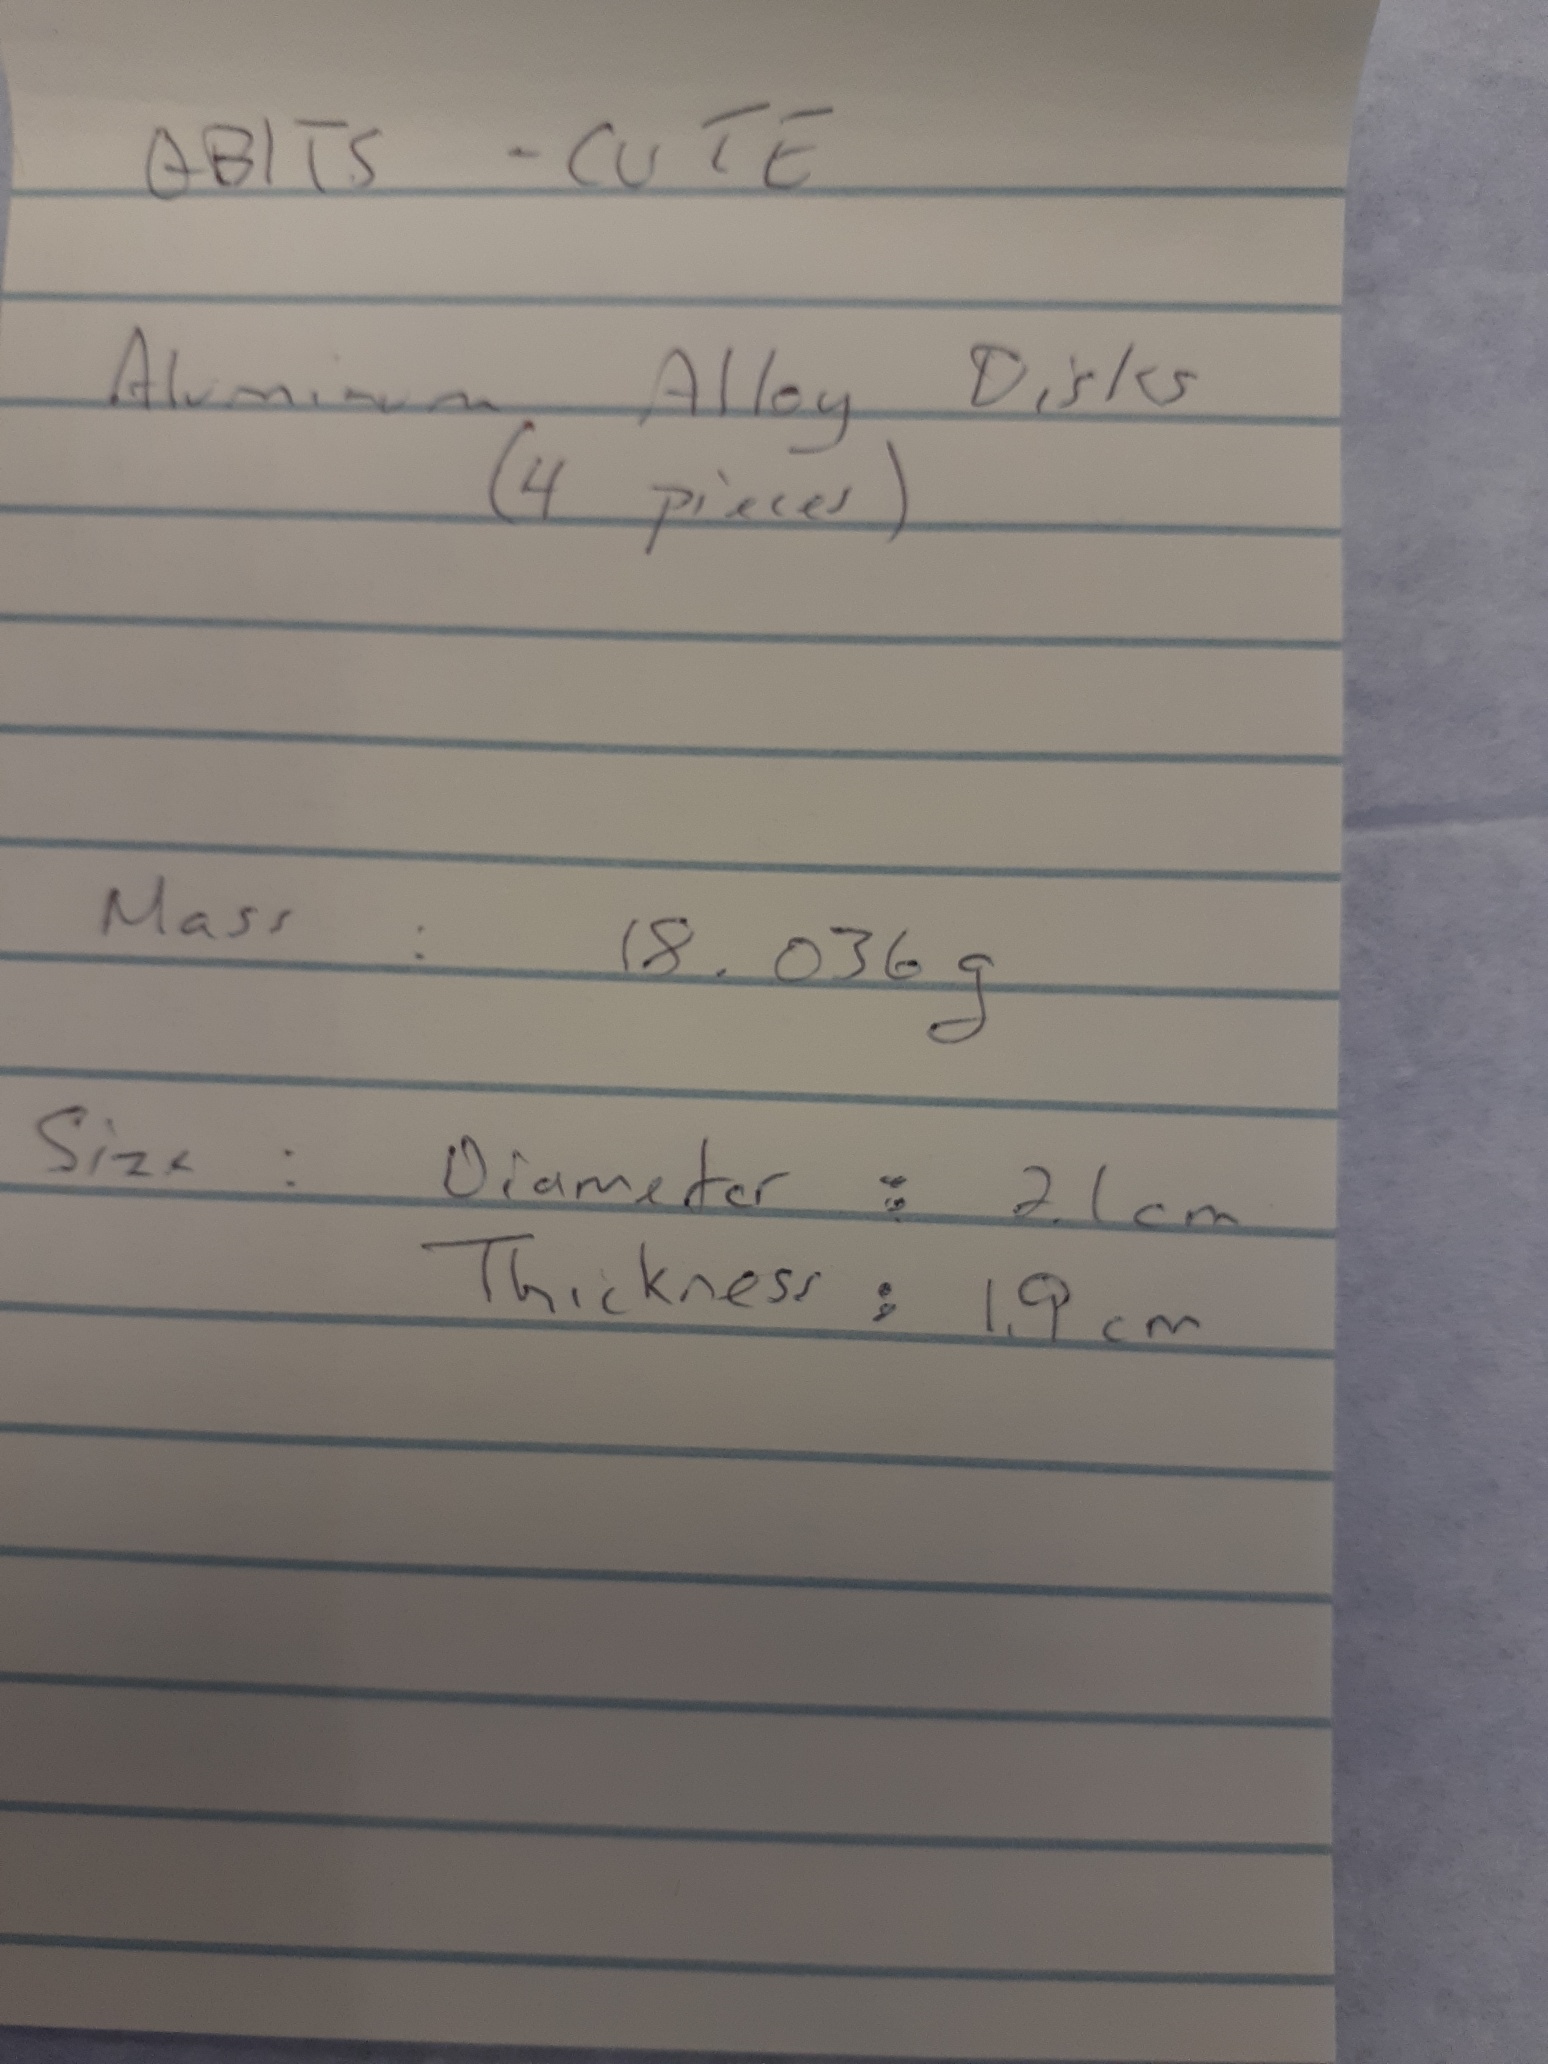 ABITS - CUTE
Aluminum Alloy Disks
(4 pieces)
Mass : 18.036g
Size : Diameter : 2.1cm
Thickness : 1.9cm